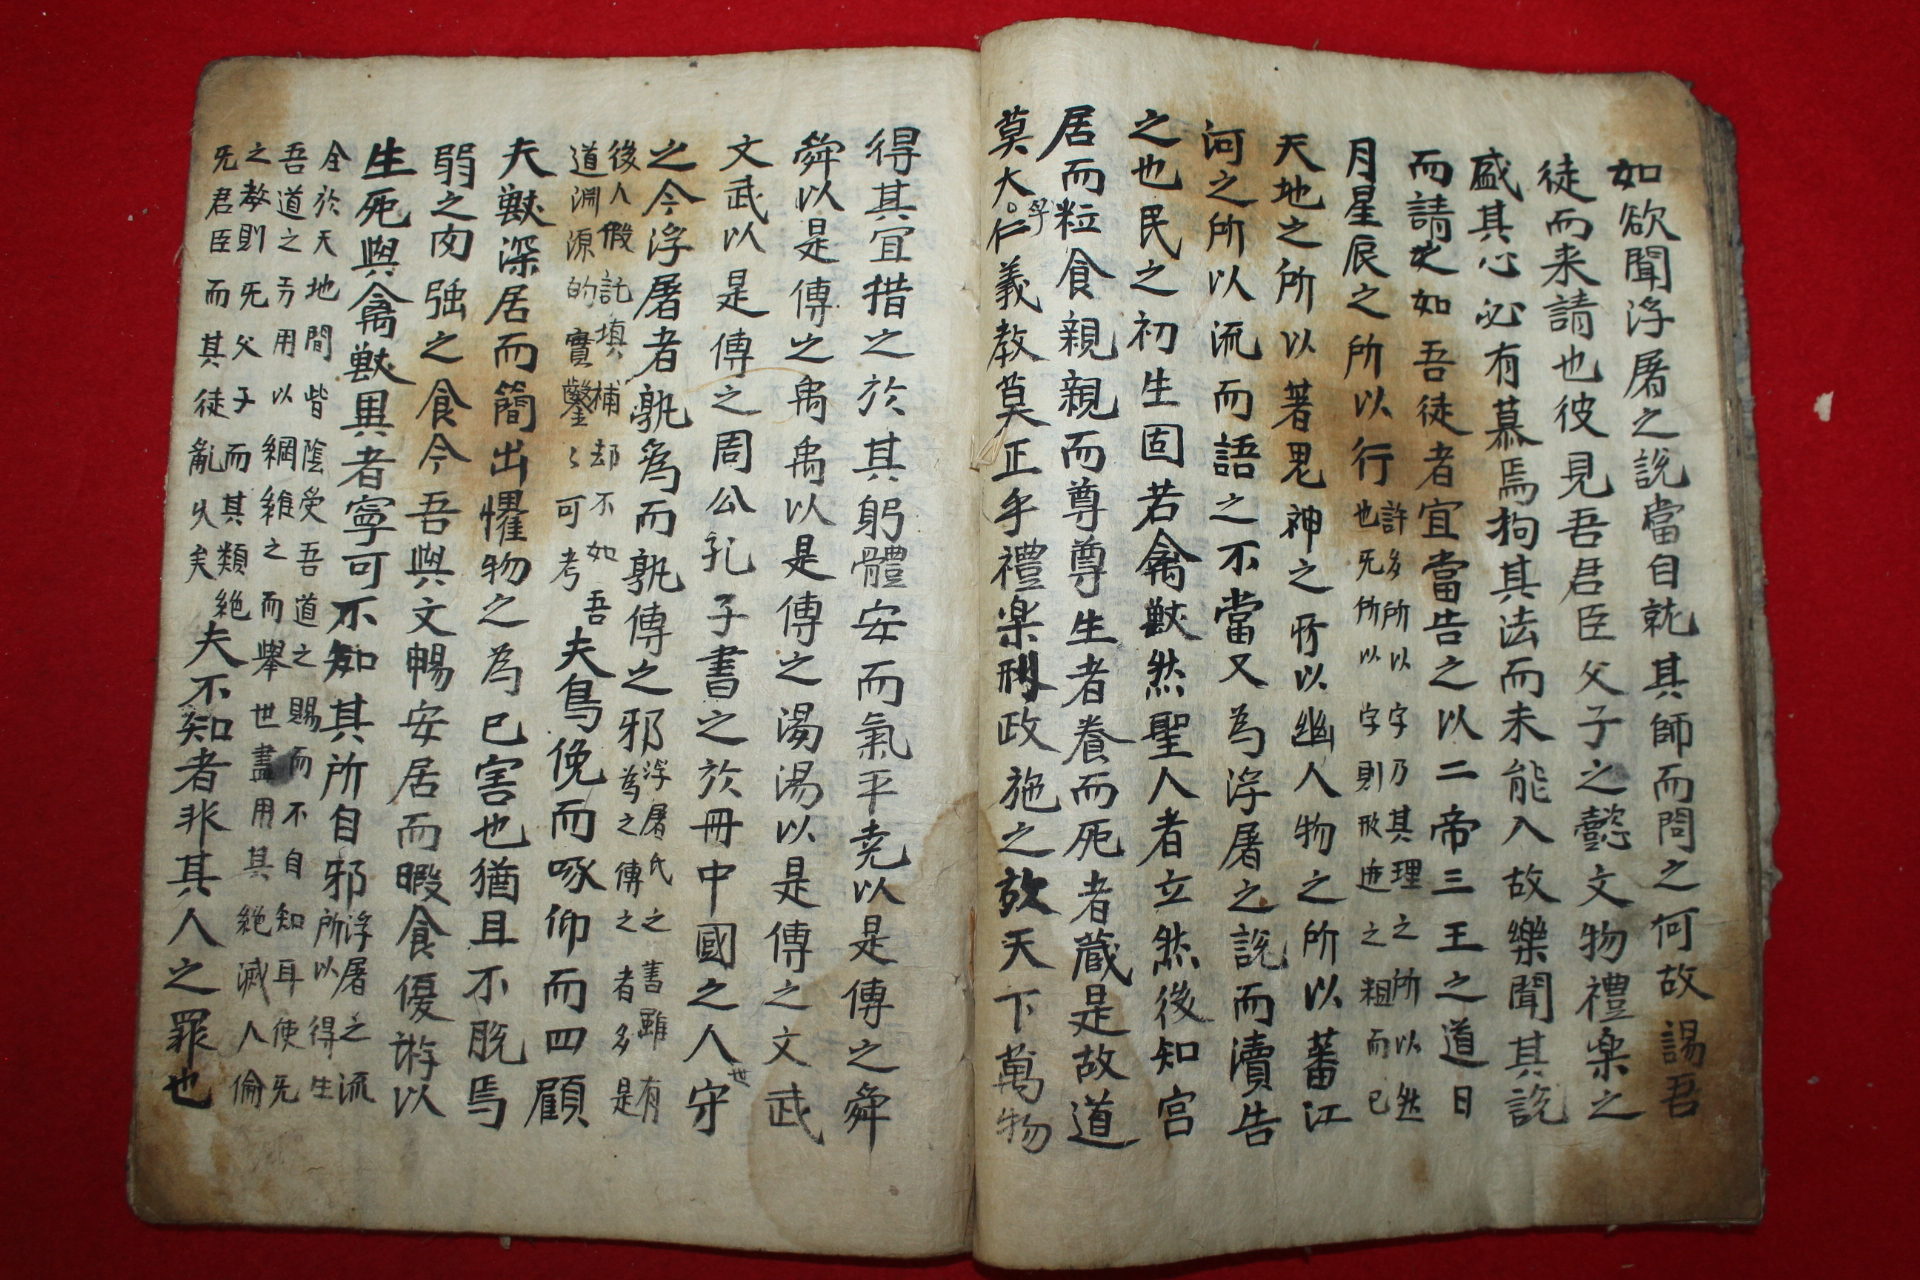 如欲聞浮屠之說當自就其師而問之何故謁吾
徒而来請也彼見吾君臣父子之懿文物禮楽之
盛其心必有慕焉拘其法而未能入故樂聞其說
而請之如吾徒者宜當告之以二帝三王之道日
月星辰之所以行
許多所以字乃其理之所以然
也旡所以字則形迹之粗而已
天地之所以著鬼神之所以幽人物之所以蕃江
河之所以流而語之不當又為浮屠之說而瀆告
之也民之初生固若禽獣然聖人者立然後知宮
居而粒食親親而尊尊生者養而死者蔵是故道
莫大乎仁義教莫正乎禮楽刑政施之於天下萬物
得其宜措之於其躬體安而氣平尭以是傳之舜
舜以是傳之禹禹以是傳之湯湯以是傳之文武
文武以是傳之周公孔子書之於冊中國之人世守
之今浮屠者孰爲而孰傳之邪
浮屠氏之書雖有
為之傳之者多是
後人假託填補却不如吾
道淵源的實鑿〻可考
夫鳥俛而啄仰而四顧
夫獣深居而簡出懼物之為己害也猶且不脫焉
弱之肉強之食今吾與文暢安居而暇食優游以
生死與禽獣異者寧可不知其所自邪
浮屠之流
所以得生
全於天地間皆隂受吾道之賜而不自知耳使旡
吾道之功用以綱維之而舉世盡用其絶滅人倫
之教則旡父子而其類絶
旡君臣而其徒亂久矣
夫不知者非其人之罪也